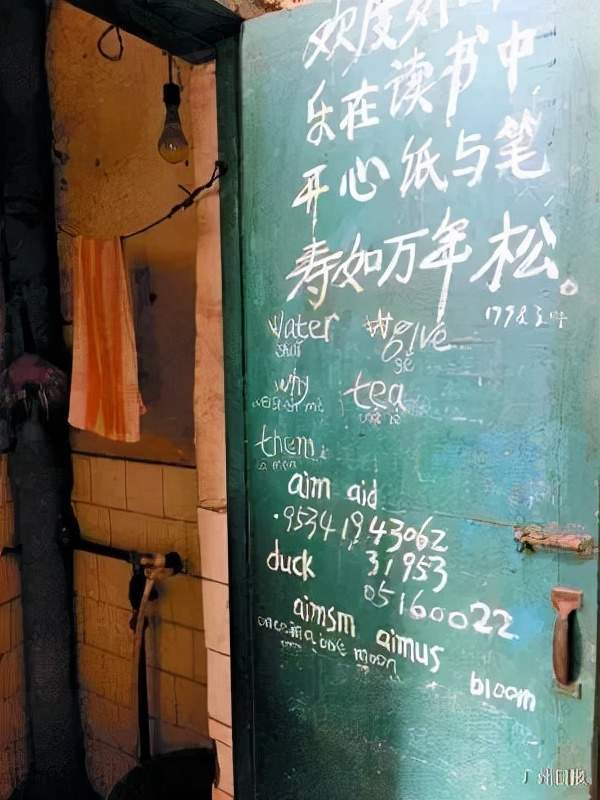 欢度
乐在读书中
开心纸与笔
寿如万年松。
water give
shuǐ gě
why tea
them
a men
aim aid
.95341943062
duck 31953
05160022
aimsm aimus
moon
bloom
广州日报